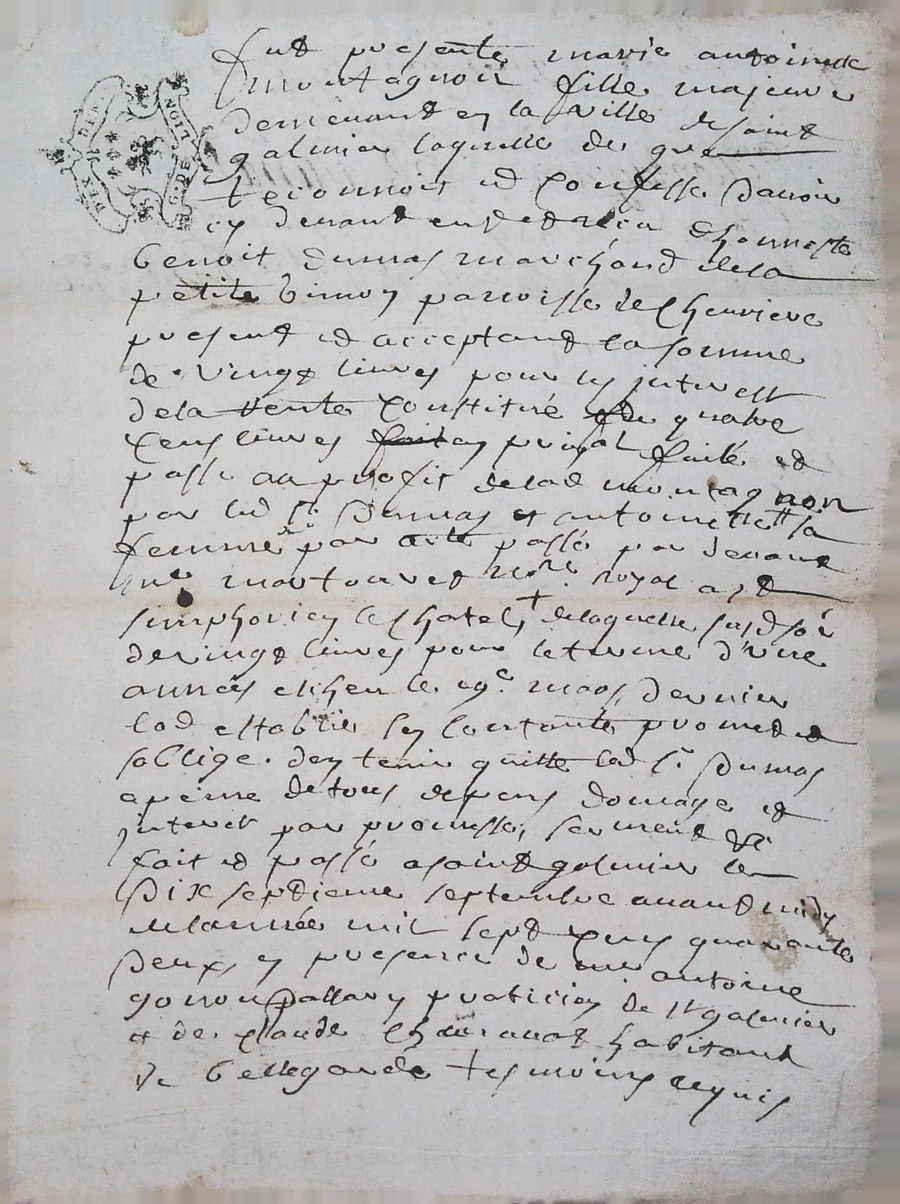 DEUX DEN. G. DE LION
fut presente marie antoinette
montagnon fille majeure
demeurant en la ville de saint
galmier laquelle de gre
reconnoit et confesse d'avoir
cy devant eu et receu d'honneste
benoit dumas marchand de la
petite bimon parroisse de chevriere
present et acceptant la somme
de vingt livres pour les interest
de la rente constitué de quatre
cens livres en prinpal faite et
passé au profit de lad montagnon
par led Sr Dumas et antoinette sa
femme par acte passé par devant
me nore royal a st
simphorien le chatel + de laquelle susd so
de vingt livres pour le terme d'une
année echeu le 19e mars dernier
lad establie sen contante promet et
soblige d'en tenir quitte led Sr Dumas
a peine de tous depens domage et
interet par promesse, serment &c
fait et passé a saint galmier le
dix septieme septembre avant midy
de l'année mil sept cens quarante
deux, en presence de me antoine
praticien de st galmier
et de claude habitant
de bellegarde tesmoins requis